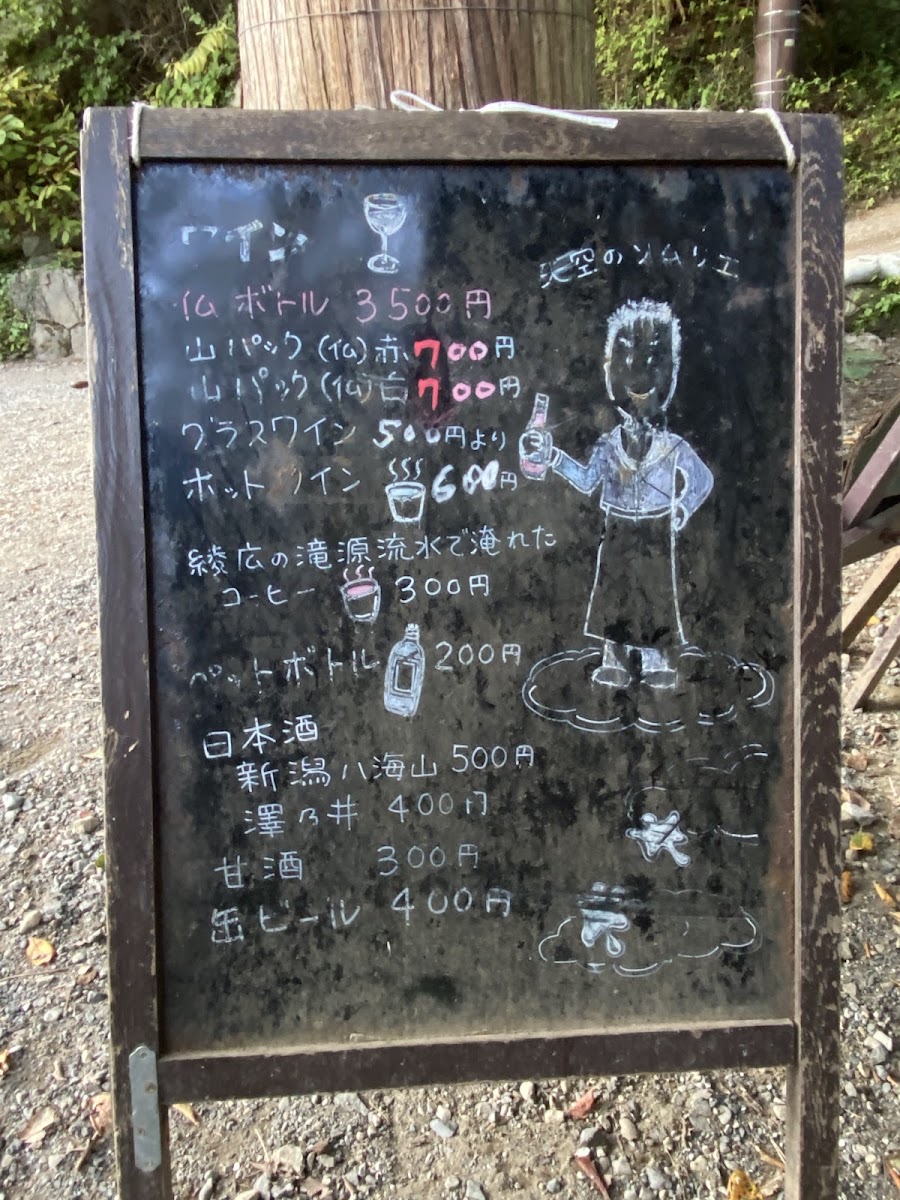 ワイン
天空のソムリエ
仏 ボトル 3500円
山パック(仏)赤700円
山パック(仏)白700円
グラスワイン 500円より
ホットワイン 600円
綾広の滝源流水で淹れた
コーヒー 300円
ペットボトル 200円
日本酒
新潟八海山 500円
澤乃井 400円
甘酒 300円
缶ビール 400円